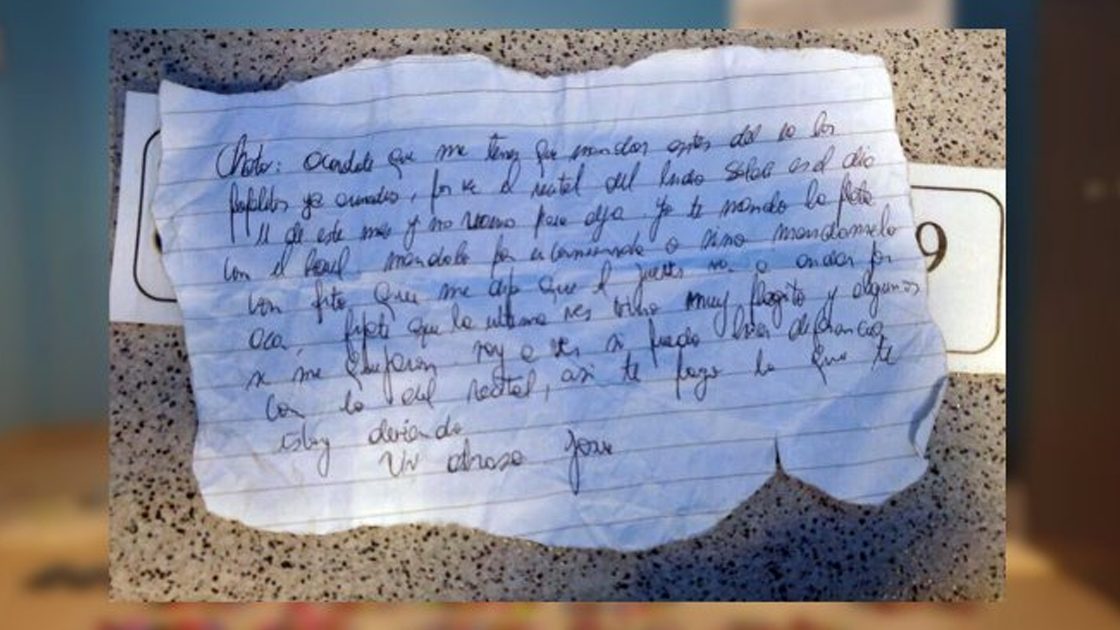 Chato: acordate que me tenes que mandar antes del 20 los
papelitos ya armados, por ve el recital del Indio Solari es el dia
11 de este mes y no vamos para alla. Yo te mando la plata
con el mandalo por encomienda o sino mandamelo
con fito, que me dijo que el jueves va a andar por
aca, fijate que la ultima ves vino muy flojito y algunos
se me quejaron, voy a ver si puedo hacer diferencia
con lo del recital, asi te pago lo que te
estoy deviendo
Un abrazo Jose
9